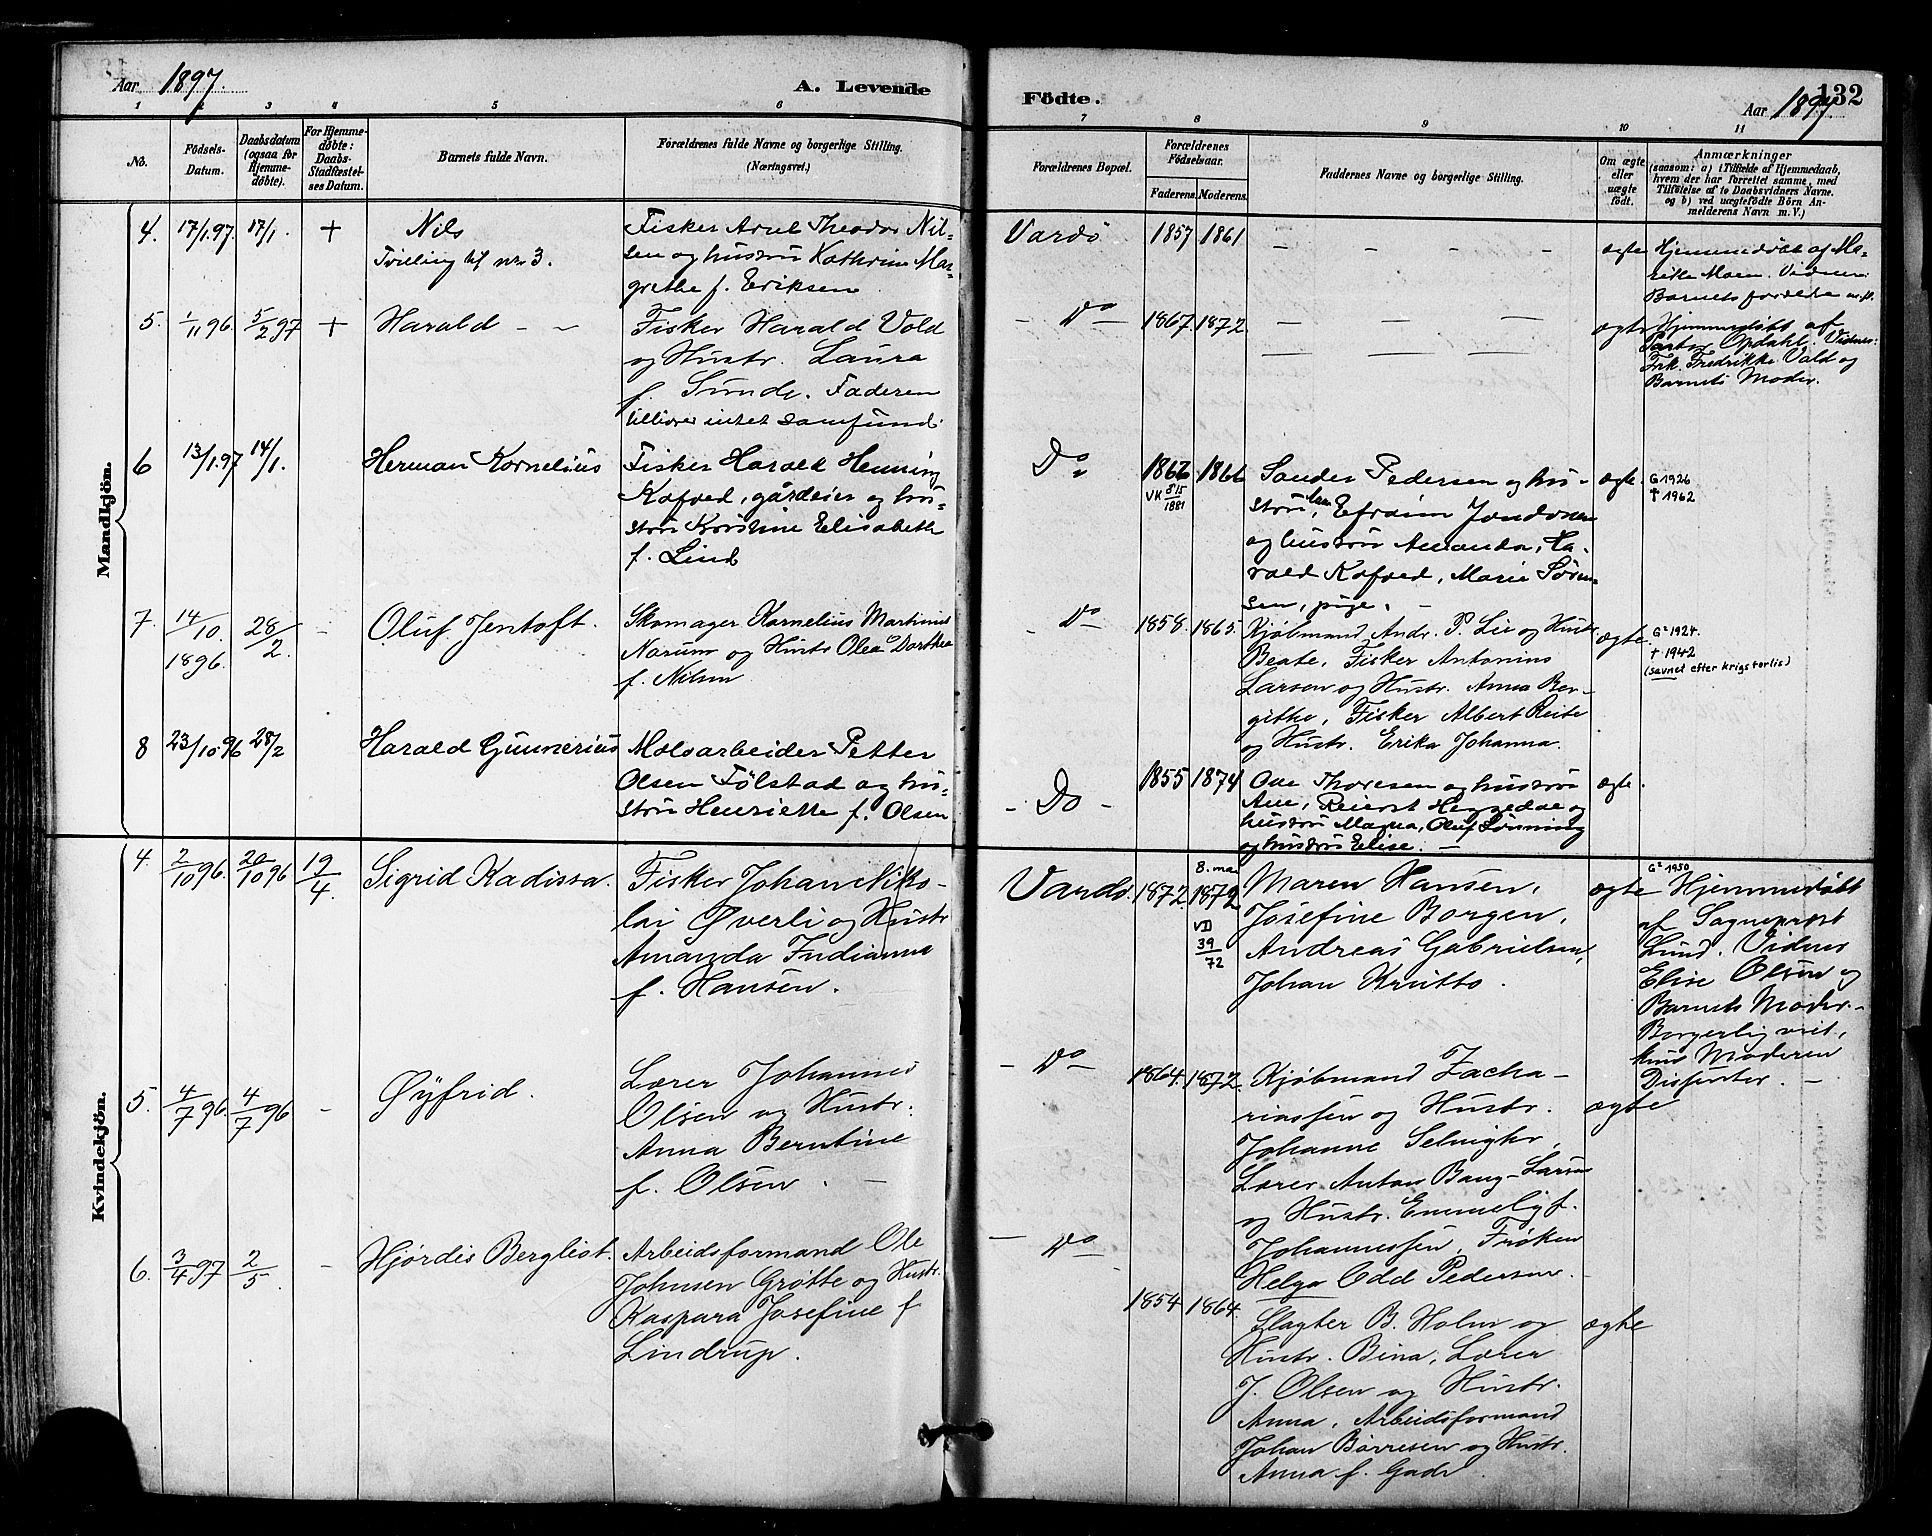 Aar 1897.
A. Levende
Födte.
132
Aar 1897
1 2 3 4 5 6 7 8 9 10 11
No.
Födsels-
Datum.
Daabsdatum
(ogsaa for
Hjemme-
døbte).
For Hjemme-
døbte:
Daabs-
Stadfæstel-
ses Datum.
Barnets fulde Navn.
Forældrenes fulde Navne og borgerlige Stilling.
(Næringsvei.)
Forældrenes Bopæl.
Forældrenes
Fødselsaar.
Faderens. Moderens.
Faddernes Navne og borgerlige Stilling.
Om ægte
eller
uægte
født.
Anmærkninger
(saasom: a) i Tilfælde af Hjemmedaab,
hvem der har forrettet samme, med
Tilføielse af to Daabsvidners Navne.
og b) ved uægtefödte Börn An-
melderens Navn m. V.)
Mandkjön.
4. 17/1.97. 17/1. +
Nils
Tvilling til nr. 3.
Fisker Arel Theodor Nil-
sen og hustru Kathrine Mar-
grethe f. Eriksen
Vardö 1857 1861 — — — — ægte
Hjemmedøbt af Ma-
Moen. Vidner:
Barnets forældre
5. 1/11 96. 5/2 97 +
Harald — —
Fisker Harald Vold
og Hustr. Laura
f. Sunde. Faderen
tilhører intet samfund.
— Do — 1867. 1872. — — — — ægte
Hjemmedøbt af
Pastor Opdahl. Vidner:
Frk. Fredrikke Vald og
Barnets Moder.
6 13/1.97 14/1.
Herman Kornelius
Fisker Harald Henning
Kofoed, gårdeier og hu-
stru Kirstine Elisabeth
f. Lind
Do 1862 1866
VK 815/1881
Sander Pedersen og hu-
stru, Efraim Jondosen
og hustru Amanda, Ha-
rald Kofoed, Marie Søren-
sen, pige. —
ægte.
G 1926
† 1962
7. 14/10. 1896. 28/2. —
Oluf Jentoft.
Skomager Kornelius Martinus
Narum og Hustr. Olea Dorthea
f. Nilsen
— Do — 1858. 1865.
Kjøbmand Andr. P. Lie og Hustr.
Beate, Fisker Antonius
Larsen og Hustr. Anna Ber-
githe, Fisker Albert Reite
og Hustr. Erika Johanna.
ægte.
G² 1924.
† 1942
(savnet efter krigsforlis)
8 23/10.96 28/2
Harald Gunnerius
Moloarbeider Petter
Olsen Følstad og hu-
stru Henriette f. Olsen
— Do — 1855 1874
Ove Thoresen og hustru
Ane, Reiert Heggedae og
hustru Magna, Oluf Lønning
og hustru Elise. —
ægte.
Kvindekjön.
4. 2/10 96. 20/10 96 19/4.
Sigrid Kadissa.
Fisker Johan Niko-
lai Øverli og Hustr
Amanda Indianna
f. Hansen.
Vardö. 1872 8. mai 1872
VD 39/72
Maren Hansen,
Josefine Borgen,
Andreas Gabrielsen,
Johan Krutto.
ægte
G² 1950
Hjemmedøbt
af Sogneprest
Lund. Vidner
Elise Olsen og
Barnets Moder.
Borgerlig viet,
Moderen
Disenter. —
5. 4/7 96. 4/7 96 —
Øyfrid.
Lærer Johannes
Olsen og Hustr.
Anna Berntine
f. Olsen. —
— Do — 1864. 1872.
Kjøbmand Zacha-
riassen og Hustr.
Johanne
Lærer Anton Bang-Larsen
og Hustr. Emmely f.
Johannessen, Frøken
Helga Odd Pedersen.
ægte
6. 3/4 97 2/5 —
Hjørdis Bergliot.
Arbeidsformand Ole
Johnsen Grøtte og Hustr.
Kaspara Josefine f
Lindrup.
— Do — 1854. 1864.
Slagter B. Holm og
Hustr. Bina, Lærer
J. Olsen og Hustr.
Anna, Arbeidsformand
Johan Børresen og Hustr.
Anna f. Gade.
ægte